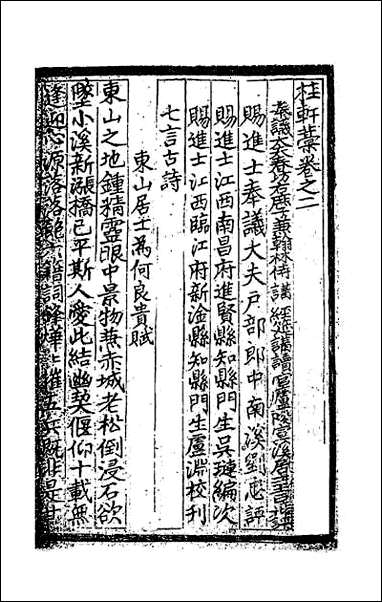 桂軒藁卷之二
奉議大夫春坊右庶子兼翰林侍講經筵講讀官廬陵
賜進士奉議大夫戶部郎中南溪劉忠評
賜進士江西南昌府進賢縣知縣門生吳璉編次
賜進士江西臨江府新淦縣知縣門生盧淵校刊
七言古詩
東山居士為何良貴賦
東山之地鍾精靈眼中景物兼赤城老松倒浸石欲
墜小溪新漲橋已平斯人愛此結幽契偃仰十載無
逢迎心源落落詞鋒燁燁摧五兵既非是